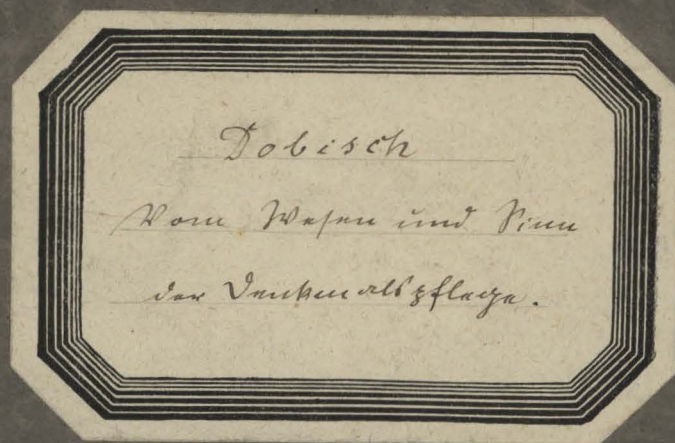 Dobisch
Vom Wesen und Sinn
der Denkmalspflege.